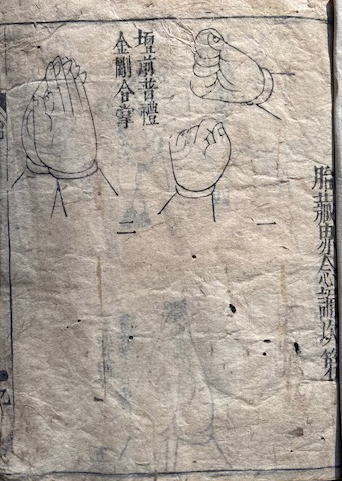 胎藏界念誦次第
一
壇前普禮
金剛合掌
二